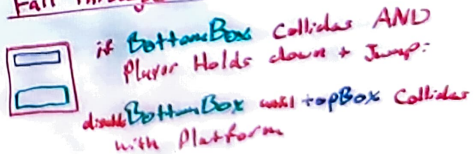 Fall Through
if BottomBox Collides AND
Player Holds down + Jump:
disable BottomBox until topBox Collides
with Platform